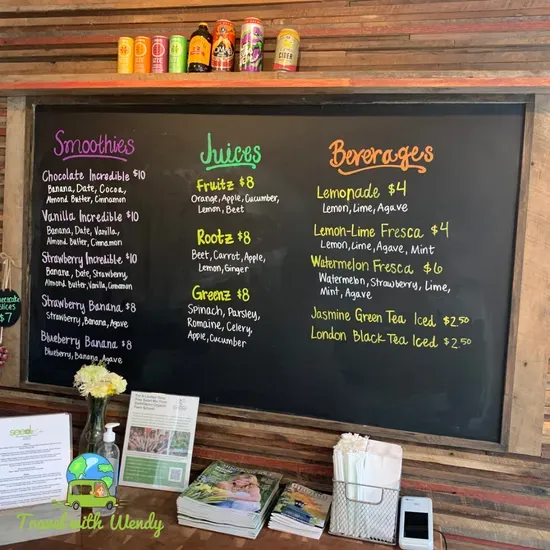 Smoothies
Chocolate Incredible $10
Banana, Date, Cocoa,
Almond Butter, Cinnamon
Vanilla Incredible $10
Banana, Date, Vanilla,
Almond Butter, Cinnamon
Strawberry Incredible $10
Banana, Date, Strawberry,
Almond Butter, Vanilla, Cinnamon
Strawberry Banana $8
Strawberry, Banana, Agave
Blueberry Banana $8
Blueberry, Banana, Agave
Juices
Fruitz $8
Orange, Apple, Cucumber,
Lemon, Beet
Rootz $8
Beet, Carrot, Apple,
Lemon, Ginger
Greenz $8
Spinach, Parsley,
Romaine, Celery,
Apple, Cucumber
Beverages
Lemonade $4
Lemon, Lime, Agave
Lemon-Lime Fresca $4
Lemon, Lime, Agave, Mint
Watermelon Fresca $6
Watermelon, Strawberry, Lime,
Mint, Agave
Jasmine Green Tea Iced $2.50
London Black Tea Iced $2.50
Slices
$7
seed
Travel with Wendy